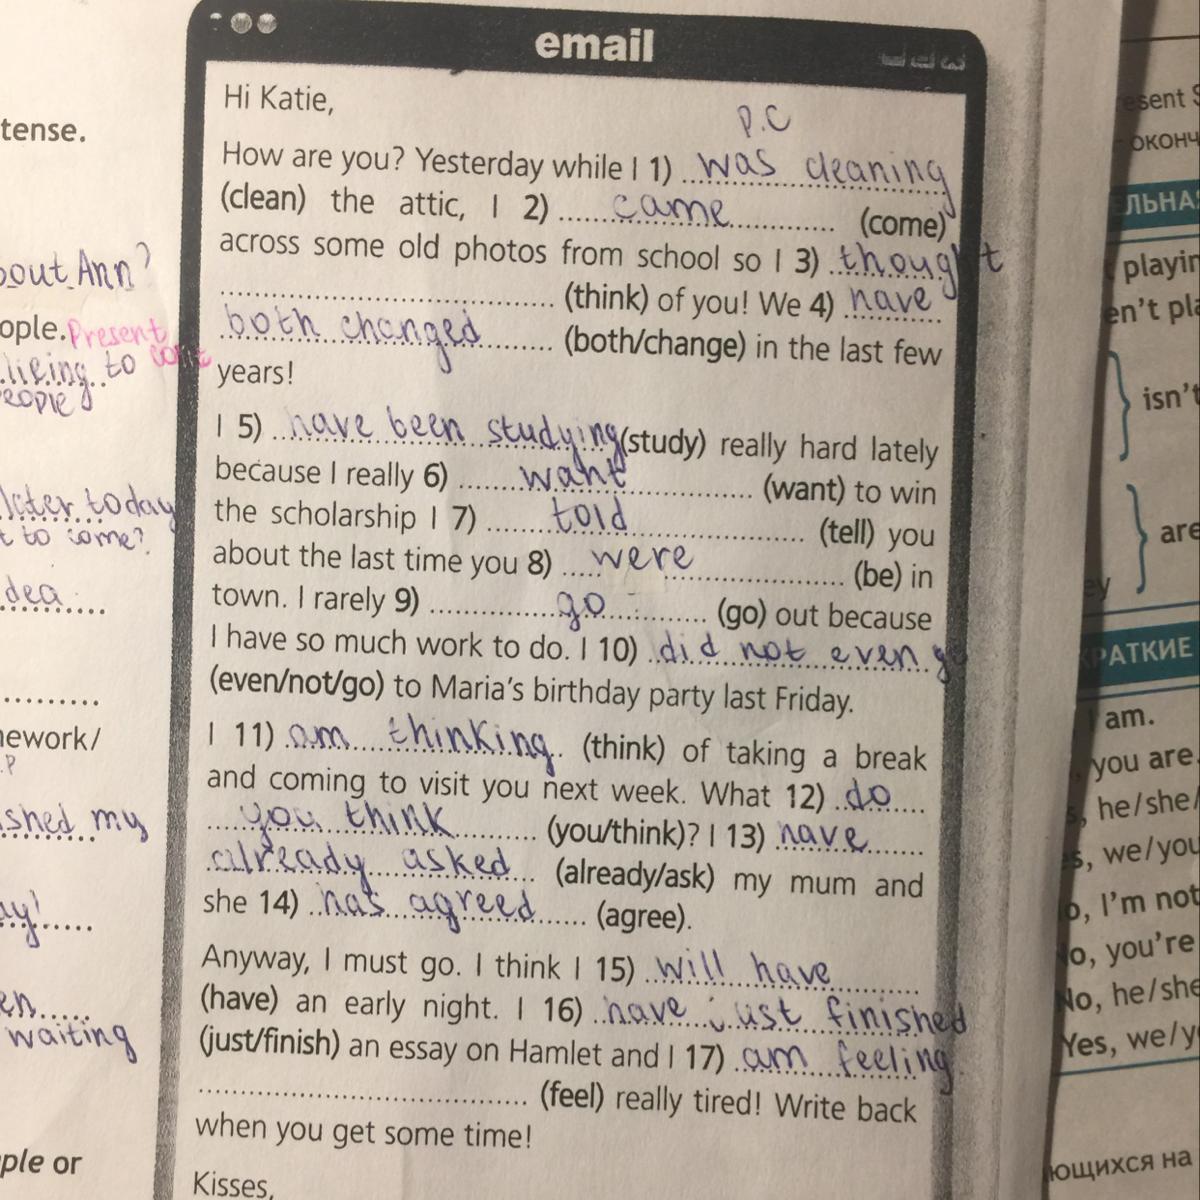 email
Hi Katie,
P.C
How are you? Yesterday while I 1) was cleaning
(clean) the attic, I 2) came (come)
across some old photos from school so I 3) thought
(think) of you! We 4) have
both changed (both/change) in the last few
years!
I 5) have been studying (study) really hard lately
because I really 6) want (want) to win
the scholarship I 7) told (tell) you
about the last time you 8) were (be) in
town. I rarely 9) go (go) out because
I have so much work to do. I 10) did not even go
(even/not/go) to Maria's birthday party last Friday.
I 11) am thinking (think) of taking a break
and coming to visit you next week. What 12) do
you think (you/think)? I 13) have
already asked (already/ask) my mum and
she 14) has agreed (agree).
Anyway, I must go. I think I 15) will have
(have) an early night. I 16) have just finished
(just/finish) an essay on Hamlet and I 17) am feeling
(feel) really tired! Write back
when you get some time!
Kisses,
tense.
bout Ann?
ople. Present
lieing to cont
people
later today
t to come?
dea
nework/
.P
shed my
ay!
en
waiting
ple or
esent S
оконч
ЛЬНАЯ
playin
en't pla
isn't
are
ey
КРАТКИЕ
I am.
you are.
s, he/she/
es, we/you
o, I'm not
No, you're
No, he/she
Yes, we/y
ющихся на